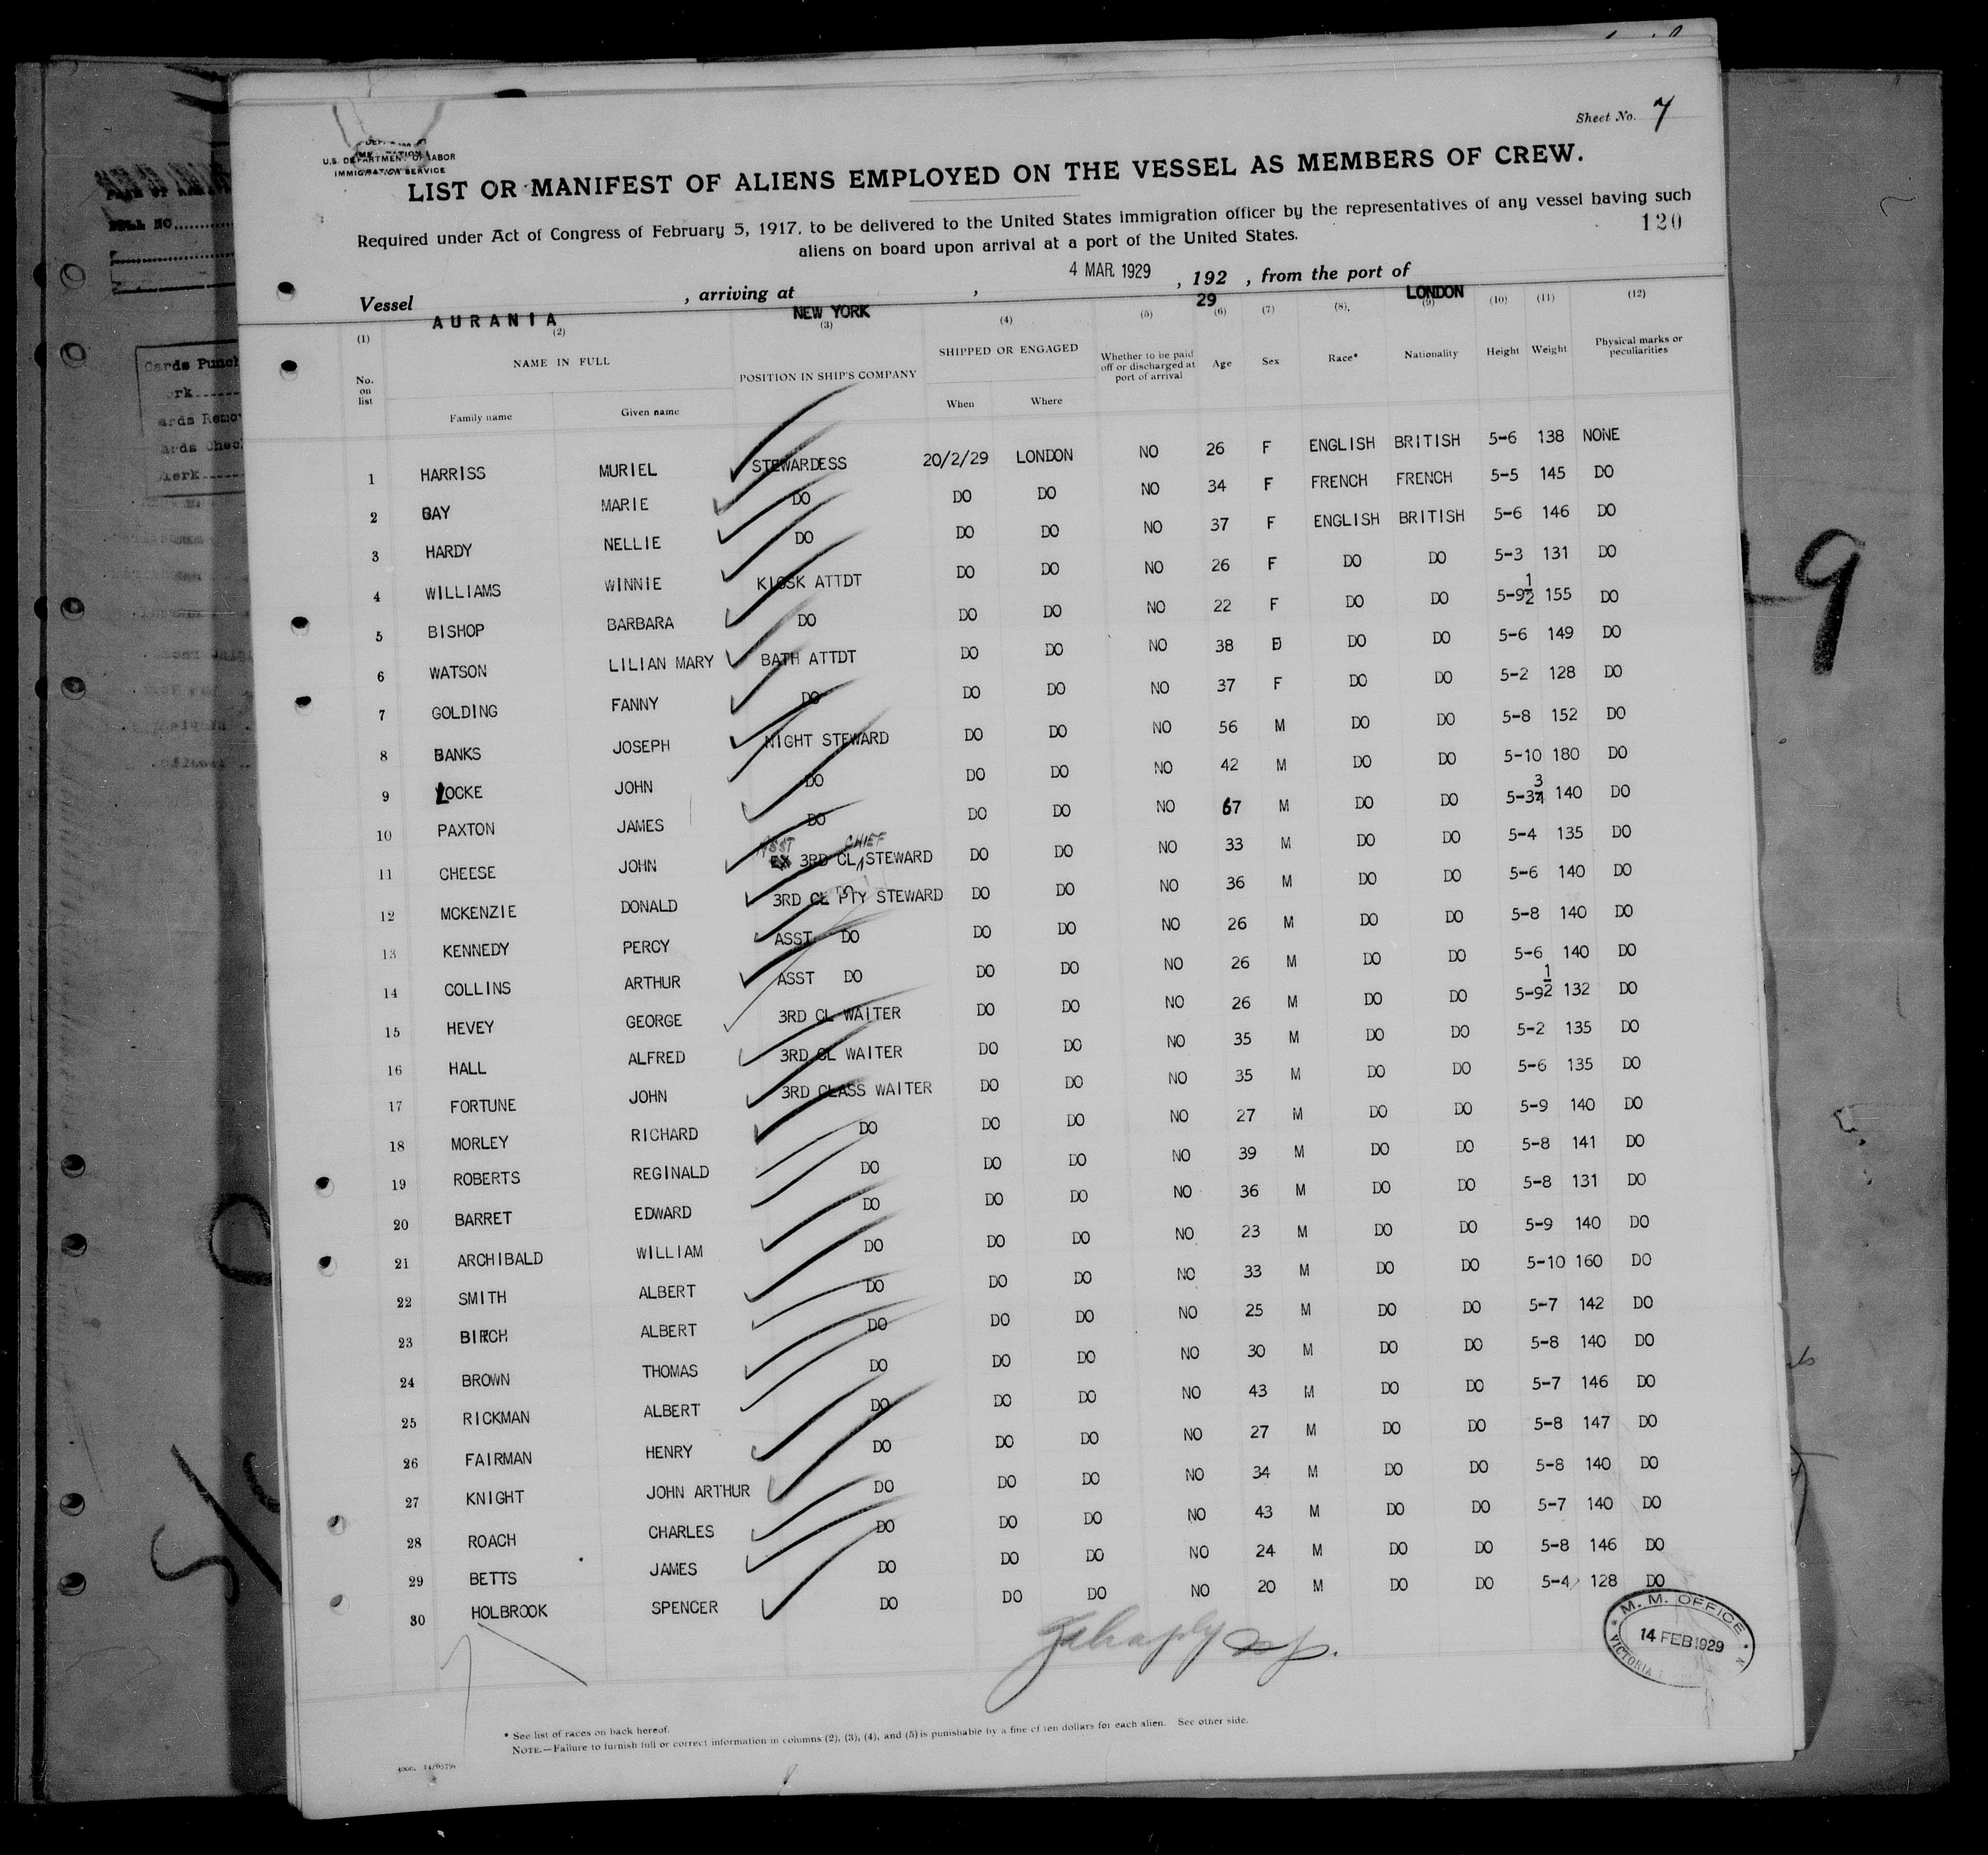 Sheet No. 7
U.S. DEPARTMENT OF LABOR
IMMIGRATION SERVICE
LIST OR MANIFEST OF ALIENS EMPLOYED ON THE VESSEL AS MEMBERS OF CREW.
Required under Act of Congress of February 5, 1917, to be delivered to the United States immigration officer by the representatives of any vessel having such
aliens on board upon arrival at a port of the United States.
120
Vessel AURANIA, arriving at NEW YORK, 4 MAR. 1929, 192 29, from the port of LONDON
(1) (2) (3) (4) (5) (6) (7) (8). (9) (10) (11) (12)
No. on list NAME IN FULL POSITION IN SHIP'S COMPANY SHIPPED OR ENGAGED Whether to be paid off or discharged at port of arrival Age Sex Race* Nationality Height Weight Physical marks or peculiarities
Family name Given name When Where
1 HARRISS MURIEL STEWARDESS 20/2/29 LONDON NO 26 F ENGLISH BRITISH 5-6 138 NONE
2 GAY MARIE DO DO DO NO 34 F FRENCH FRENCH 5-5 145 DO
3 HARDY NELLIE DO DO DO NO 37 F ENGLISH BRITISH 5-6 146 DO
4 WILLIAMS WINNIE KIOSK ATTDT DO DO NO 26 F DO DO 5-3 131 DO
5 BISHOP BARBARA DO DO DO NO 22 F DO DO 5-9½ 155 DO
6 WATSON LILIAN MARY BATH ATTDT DO DO NO 38 DO DO 5-6 149 DO
7 GOLDING FANNY DO DO DO NO 37 F DO DO 5-2 128 DO
8 BANKS JOSEPH NIGHT STEWARD DO DO NO 56 M DO DO 5-8 152 DO
9 LOCKE JOHN DO DO DO NO 42 M DO DO 5-10 180 DO
10 PAXTON JAMES DO DO DO NO 67 M DO DO 5-3¾ 140 DO
11 CHEESE JOHN ASST 3RD CL CHIEF STEWARD DO DO NO 33 M DO DO 5-4 135 DO
12 MCKENZIE DONALD 3RD CL PTY STEWARD DO DO NO 36 M DO DO 5-6 140 DO
13 KENNEDY PERCY ASST DO DO DO NO 26 M DO DO 5-8 140 DO
14 COLLINS ARTHUR ASST DO DO DO NO 26 M DO DO 5-6 140 DO
15 HEVEY GEORGE 3RD CL WAITER DO DO NO 26 M DO DO 5-9½ 132 DO
16 HALL ALFRED 3RD CL WAITER DO DO NO 35 M DO DO 5-2 135 DO
17 FORTUNE JOHN 3RD CLASS WAITER DO DO NO 35 M DO DO 5-6 135 DO
18 MORLEY RICHARD DO DO DO NO 27 M DO DO 5-9 140 DO
19 ROBERTS REGINALD DO DO DO NO 39 M DO DO 5-8 141 DO
20 BARRET EDWARD DO DO DO NO 36 M DO DO 5-8 131 DO
21 ARCHIBALD WILLIAM DO DO DO NO 23 M DO DO 5-9 140 DO
22 SMITH ALBERT DO DO DO NO 33 M DO DO 5-10 160 DO
23 BIRCH ALBERT DO DO DO NO 25 M DO DO 5-7 142 DO
24 BROWN THOMAS DO DO DO NO 30 M DO DO 5-8 140 DO
25 RICKMAN ALBERT DO DO DO NO 43 M DO DO 5-7 146 DO
26 FAIRMAN HENRY DO DO DO NO 27 M DO DO 5-8 147 DO
27 KNIGHT JOHN ARTHUR DO DO DO NO 34 M DO DO 5-8 140 DO
28 ROACH CHARLES DO DO DO NO 43 M DO DO 5-7 140 DO
29 BETTS JAMES DO DO DO NO 24 M DO DO 5-8 146 DO
30 HOLBROOK SPENCER DO DO DO NO 20 M DO DO 5-4 128 DO
M. M. OFFICE
14 FEB 1929
VICTORIA
* See list of races on back hereof.
NOTE.—Failure to furnish full or correct information in columns (2), (3), (4), and (5) is punishable by a fine of ten dollars for each alien. See other side.